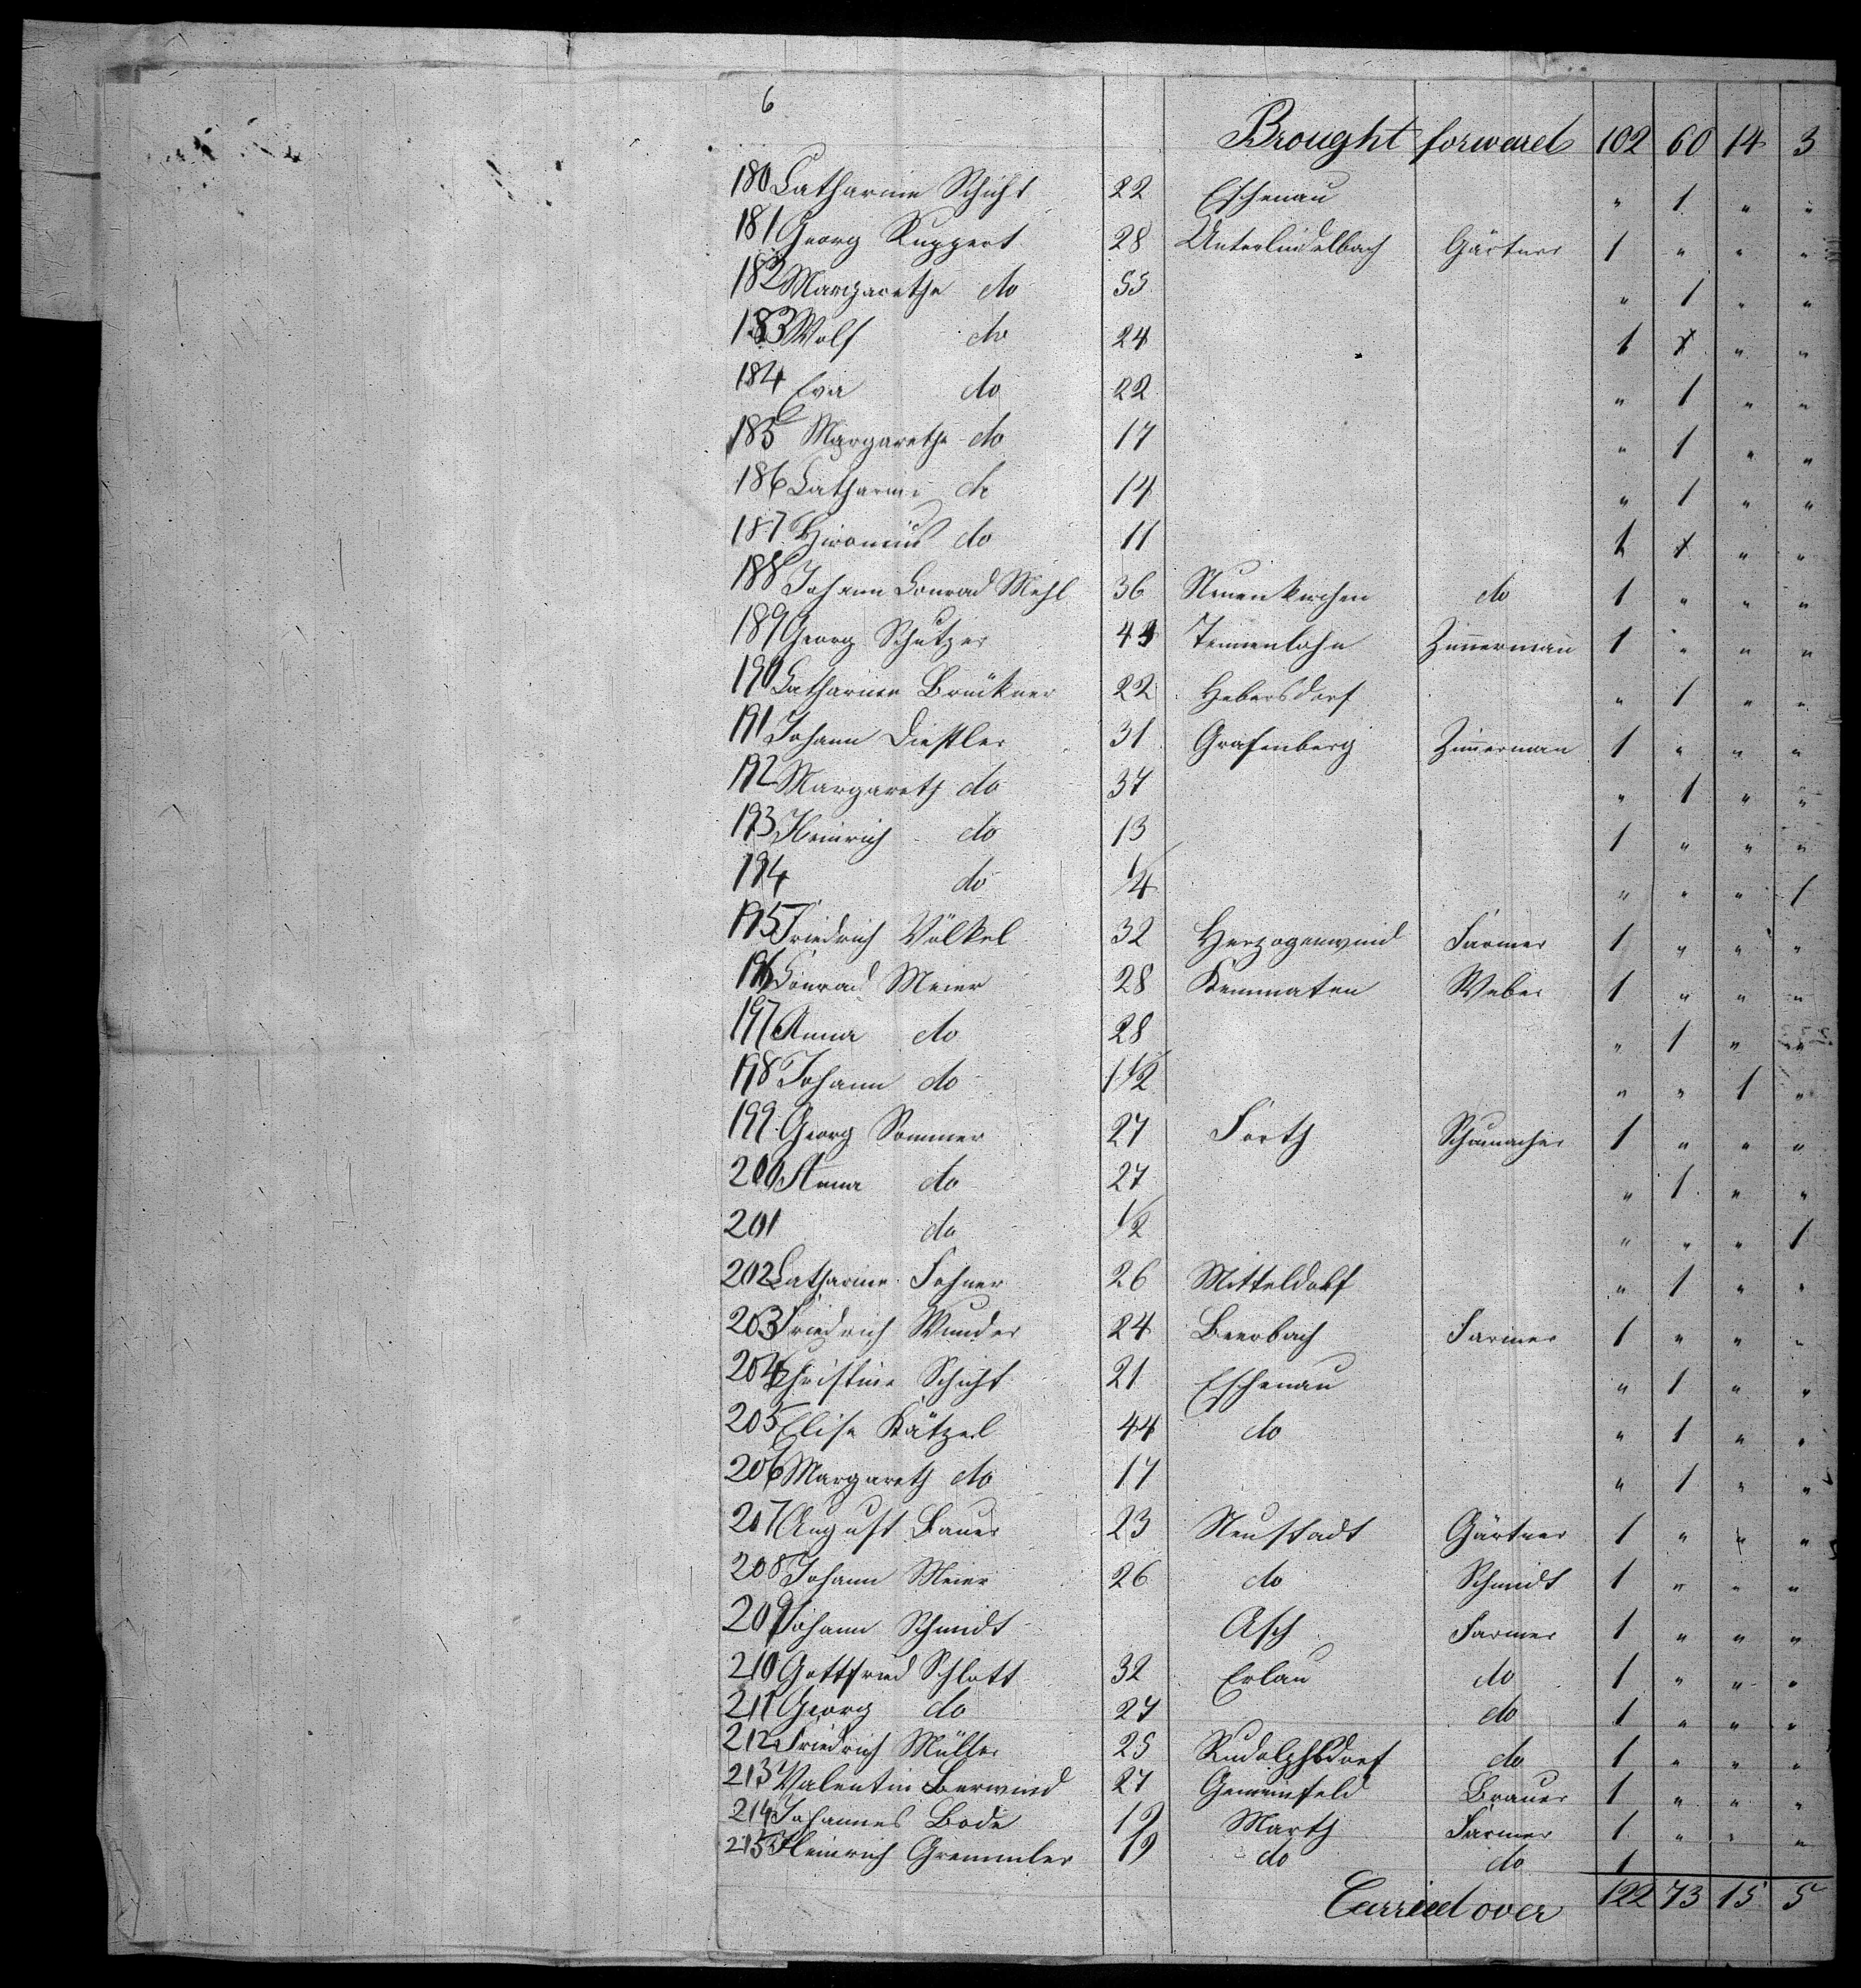 6
Brought forward 102 60 14 3
180 Catharina Schicht 22 Eschenau " 1 " "
181 Georg Ruppert 28 Unterlindelbach Gärtner 1 " " "
182 Margaretha do 55 " 1 " "
183 Wolf do 24 1 " "
184 Eva do 22 " 1 " "
185 Margaretha do 17 " 1 " "
186 Catharina do 14 " 1 " "
187 do 11 1 " "
188 Johann Conrad Mehl 36 Neuenkirchen do 1 " " "
189 Georg Schutzer 43 Tennenlohe Zimmermann 1 " " "
190 Catharina Brückner 22 Hebersdorf " 1 " "
191 Johann Distler 31 Grafenberg Zimmerman 1 " " "
192 Margareth do 37 " 1 " "
193 Heinrich do 13 1 " " "
194 do 1/4 " " " 1
195 Friedrich Völkel 32 Herzogenwind Farmer 1 " " "
196 Conrad Meier 28 Kemmaten Weber 1 " " "
197 Anna do 28 " 1 " "
198 Johann do 1 1/2 " " 1 "
199 Georg Sommer 27 Forth Schumacher 1 " " "
200 Anna do 27 " 1 " "
201 do 1/2 " " " 1
202 Catharina Fohner 26 Mitteldorf " 1 " "
203 Friedrich Wunder 24 Beerbach Farmer 1 " " "
204 Christine Schicht 21 Eschenau " 1 " "
205 Elise Kätzel 44 do " 1 " "
206 Margareth do 17 " 1 " "
207 August Bauer 23 Neustadt Gärtner 1 " " "
208 Johann Meier 26 do Schmidt 1 " " "
209 Johann Schmidt Asch Farmer 1 " " "
210 Gottfried Schlott 32 Erlau do 1 " " "
211 Georg do 27 do 1 " " "
212 Friedrich Müller 25 Rudolphsdorf do 1 " " "
213 Valentin Berwind 27 Gemeinfeld Brauer 1 " " "
214 Johannes Bode 19 Marth Farmer 1 " " "
215 Heinrich Gremmler 19 do do 1
Carried over 122 73 15 5